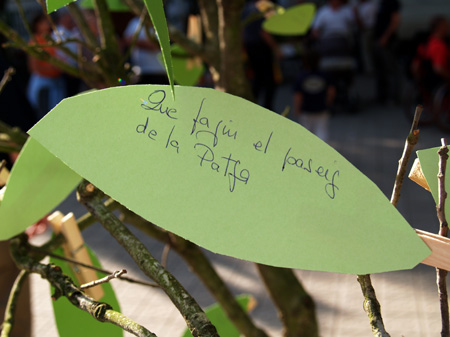 Que fagin el passeig
de la Patja